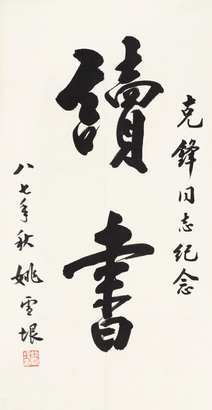 克鋒同志纪念
讀書
八七年秋
姚雪垠